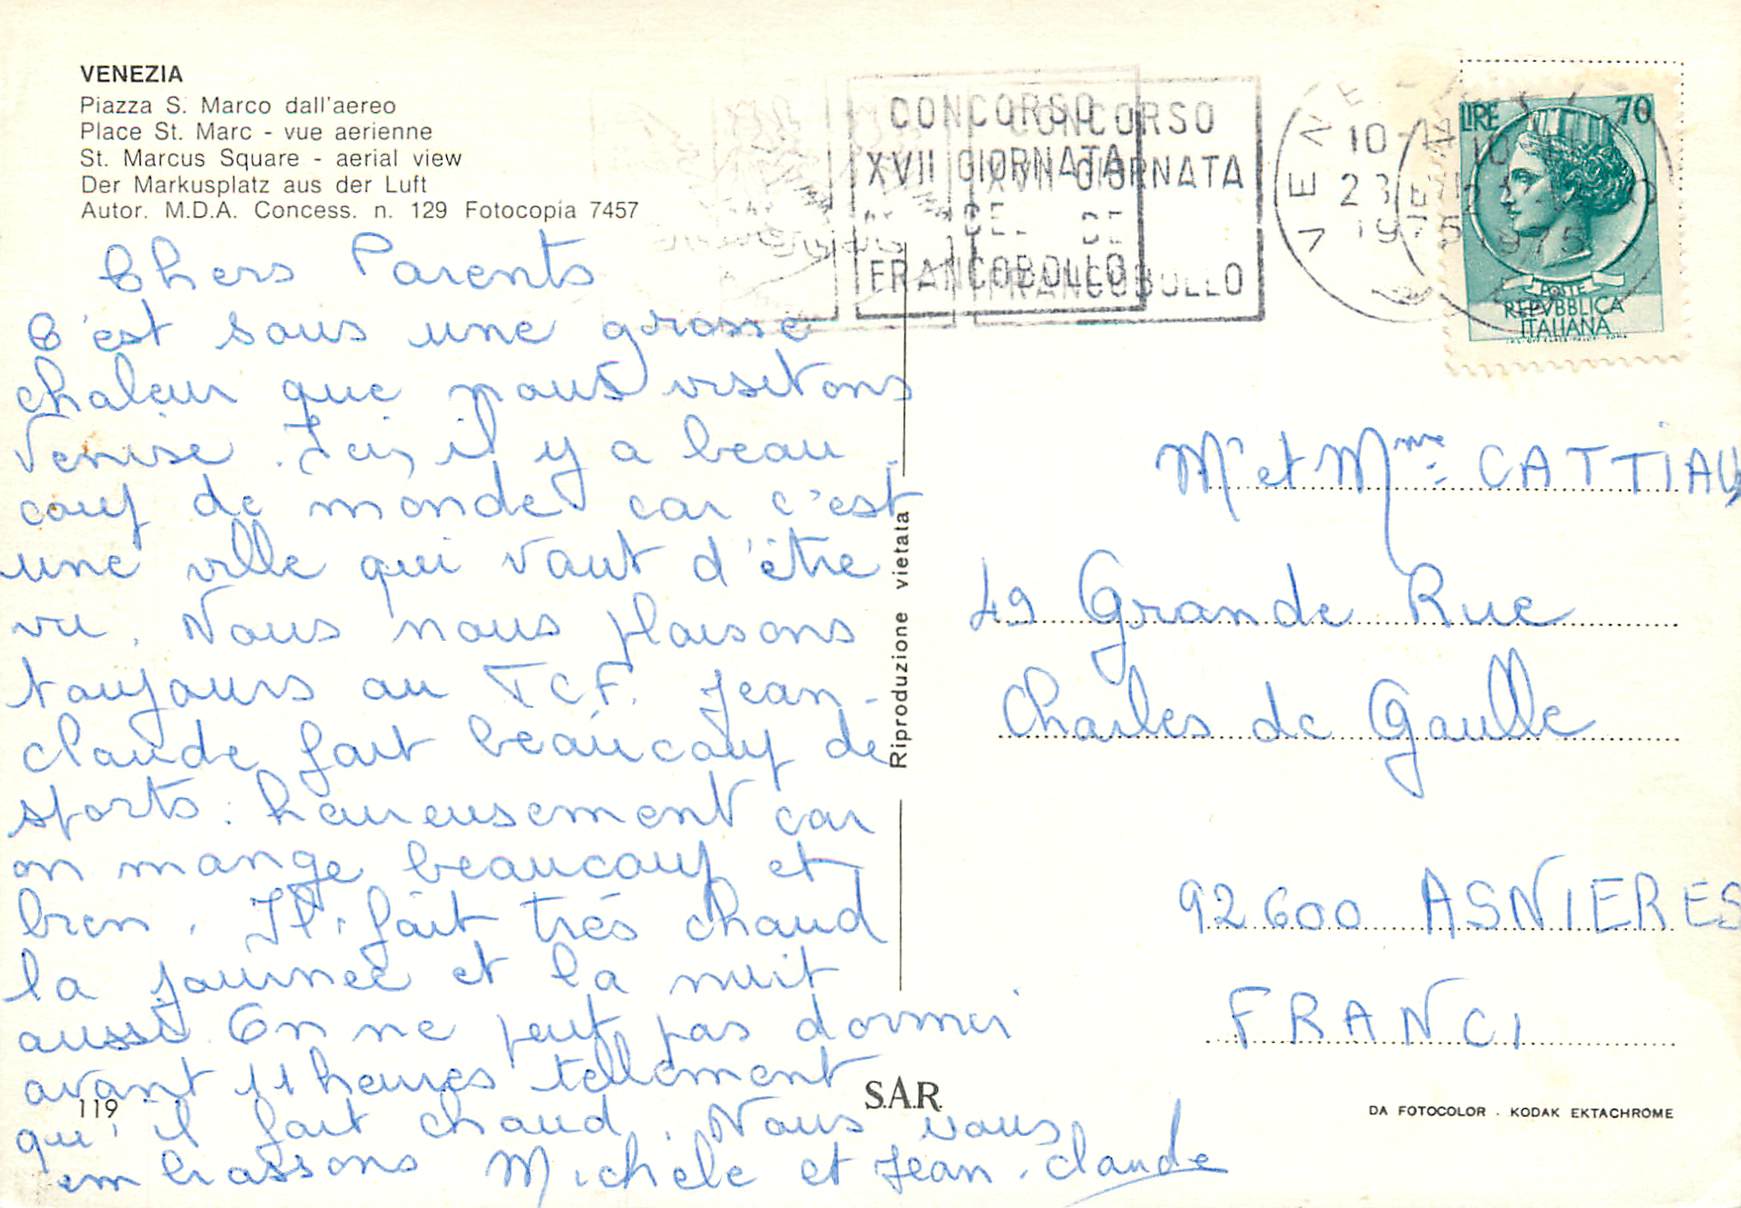 VENEZIA
Piazza S. Marco dall'aereo
Place St. Marc - vue aerienne
St. Marcus Square - aerial view
Der Markusplatz aus der Luft
Autor. M.D.A. Concess. n. 129 Fotocopia 7457
Chers Parents
C'est sous une grosse
chaleur que nous visitons
Venise. Ici, il y a beau
coup de monde car c'est
une ville qui vaut d'être
vu. Nous nous plaisons
toujours au TCF. Jean-
claude fait beaucoup de
sports. heureusement car
on mange beaucoup et
bien. Il fait très chaud
la journée et la nuit
aussi On ne peut pas dormir
avant 11 heures tellement
qu'il fait chaud. Nous vous
embrassons Michèle et Jean-claude
119
Riproduzione vietata
S.A.R.
CONCORSO CONCORSO
XVII GIORNATA XVII GIORNATA
DEL DE
FRANCOBOLLO FRANCOBOLLO
VENE
10
23
1975
LIRE 70
POSTE
REPVBBLICA
ITALIANA
Mr et Mme CATTIAU
49 Grande Rue
Charles de Gaulle
92600 ASNIERES
FRANCI
DA FOTOCOLOR - KODAK EKTACHROME